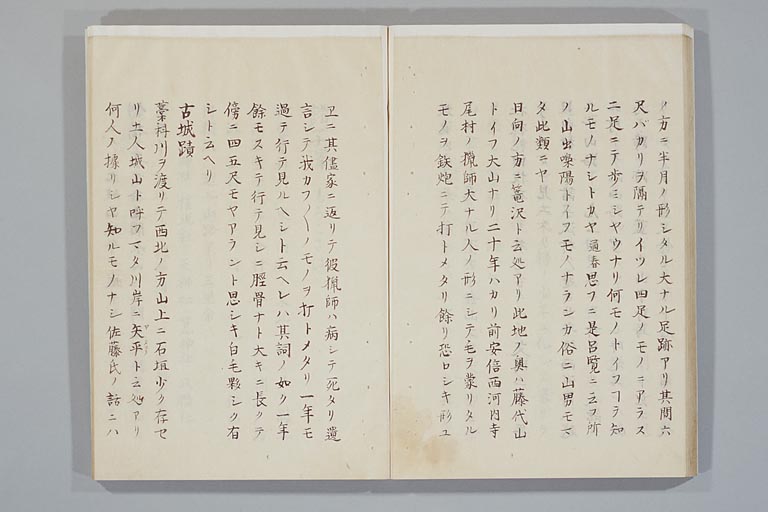 ノ方ニ半月ノ形シタル大ナル足跡アリ其間六
尺バカリヲ隔テリイツレ四足ノモノニアラス
二足ニテ歩ミシヤウナリ何モノトイフコヿヲ知
ルモノナシトカヤ通春思フニ是呂覧ニ云フ所
ノ山出嘄陽トイフモノナランカ俗ニ山男モマ
タ此類ニヤ
日向ノ方ニ篭沢ト云処アリ此地ノ奥ハ藤代山
トイフ大山ナリ二十年ハカリ前安倍西河内寺
尾村ノ猟師大ナル人ノ形ニシテ毛ヲ蒙リタル
モノヲ鉄炮ニテ打トメタリ餘リ恐ロシキ形ユ
ヱニ其儘家ニ返リテ彼猟師ハ病シテ死タリ遺
言シテ我カフ〳〵ノモノヲ打トメタリ一年モ
過テ行テ見ルヘシト云ヘレハ其詞ノ如ク一年
餘モスキテ行テ見シニ脛骨ナト大キニ長クテ
傍ニ四五尺モヤアラント思シキ白毛夥シク有
シト云ヘリ
古城蹟
藁科川ヲ渡リテ西北ノ方山上ニ石垣少ク存セ
リ土人城山ト呼フマタ川岸ニ矢平ト云処アリ
何人ノ據リシヤ知ルモノナシ佐藤氏ノ話ニハ